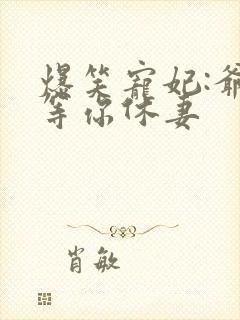 爆笑宠妃:爷
等你休妻
肖敏